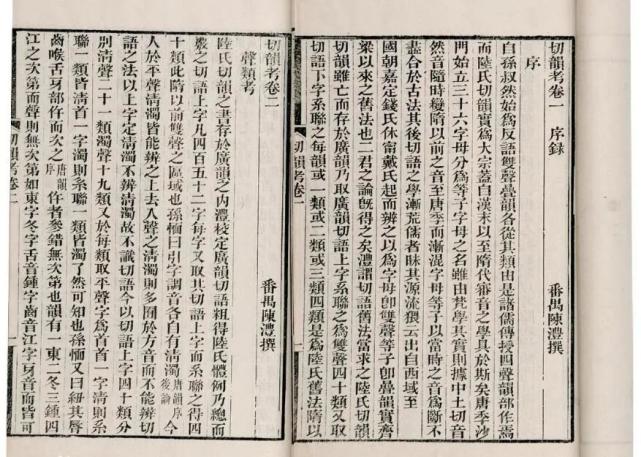 切韻考卷一 序錄
番禺陳澧撰
序
自孫叔然始為反語雙聲疊韻各從其類由是諸儒傳授四聲韻部作焉
而陸氏切韻實為大宗蓋自漢末以至隋代審音之學具於斯矣唐季沙
門始立三十六字母分為等子字母之名雖由梵學其實則據中土切音
然音隨時變隋以前之音至唐季而漸混字母等子以當時之音為斷不
盡合於古法其後切語之學漸荒儒者昧其源流猥云出自西域至
國朝嘉定錢氏休甯戴氏起而辨之以為字母卽雙聲等子卽疊韻實齊
梁以來之舊法也二君之論旣得之矣澧謂切語舊法當求之陸氏切韻
切韻雖亡而存於廣韻乃取廣韻切語上字系聯之為雙聲四十類又取
切語下字系聯之每韻或一類或二類或三類四類是為陸氏舊法隋以
切韻考卷一
切韻考卷二
番禺陳澧撰
聲類考
陸氏切韻之書存於廣韻之內澧校定廣韻切語粗得陸氏體例乃總而
覈之切語上字凡四百五十二字每字又取其切語上字而系聯之得四
十類此隋以前雙聲之區域也孫愐曰引字調音各自有清濁唐韻序今後論
人於平聲清濁皆能辨之上去入聲之清濁則多囿於方音而不能辨切
語之法以上字定清濁不辨清濁故不識切語今以切語上字四十類分
別清聲二十一類濁聲十九類又於每類取平聲字為首首一字清則系
聯一類皆清首一字濁則系聯一類皆濁了然可知也孫愐又曰紐其脣
齒喉舌牙部仵而次之唐韻序仵者參錯無次第也韻有一東二冬三鍾四
江之次第而聲則無次第如東字冬字舌音鍾字齒音江字牙音而皆可
切韻考卷二